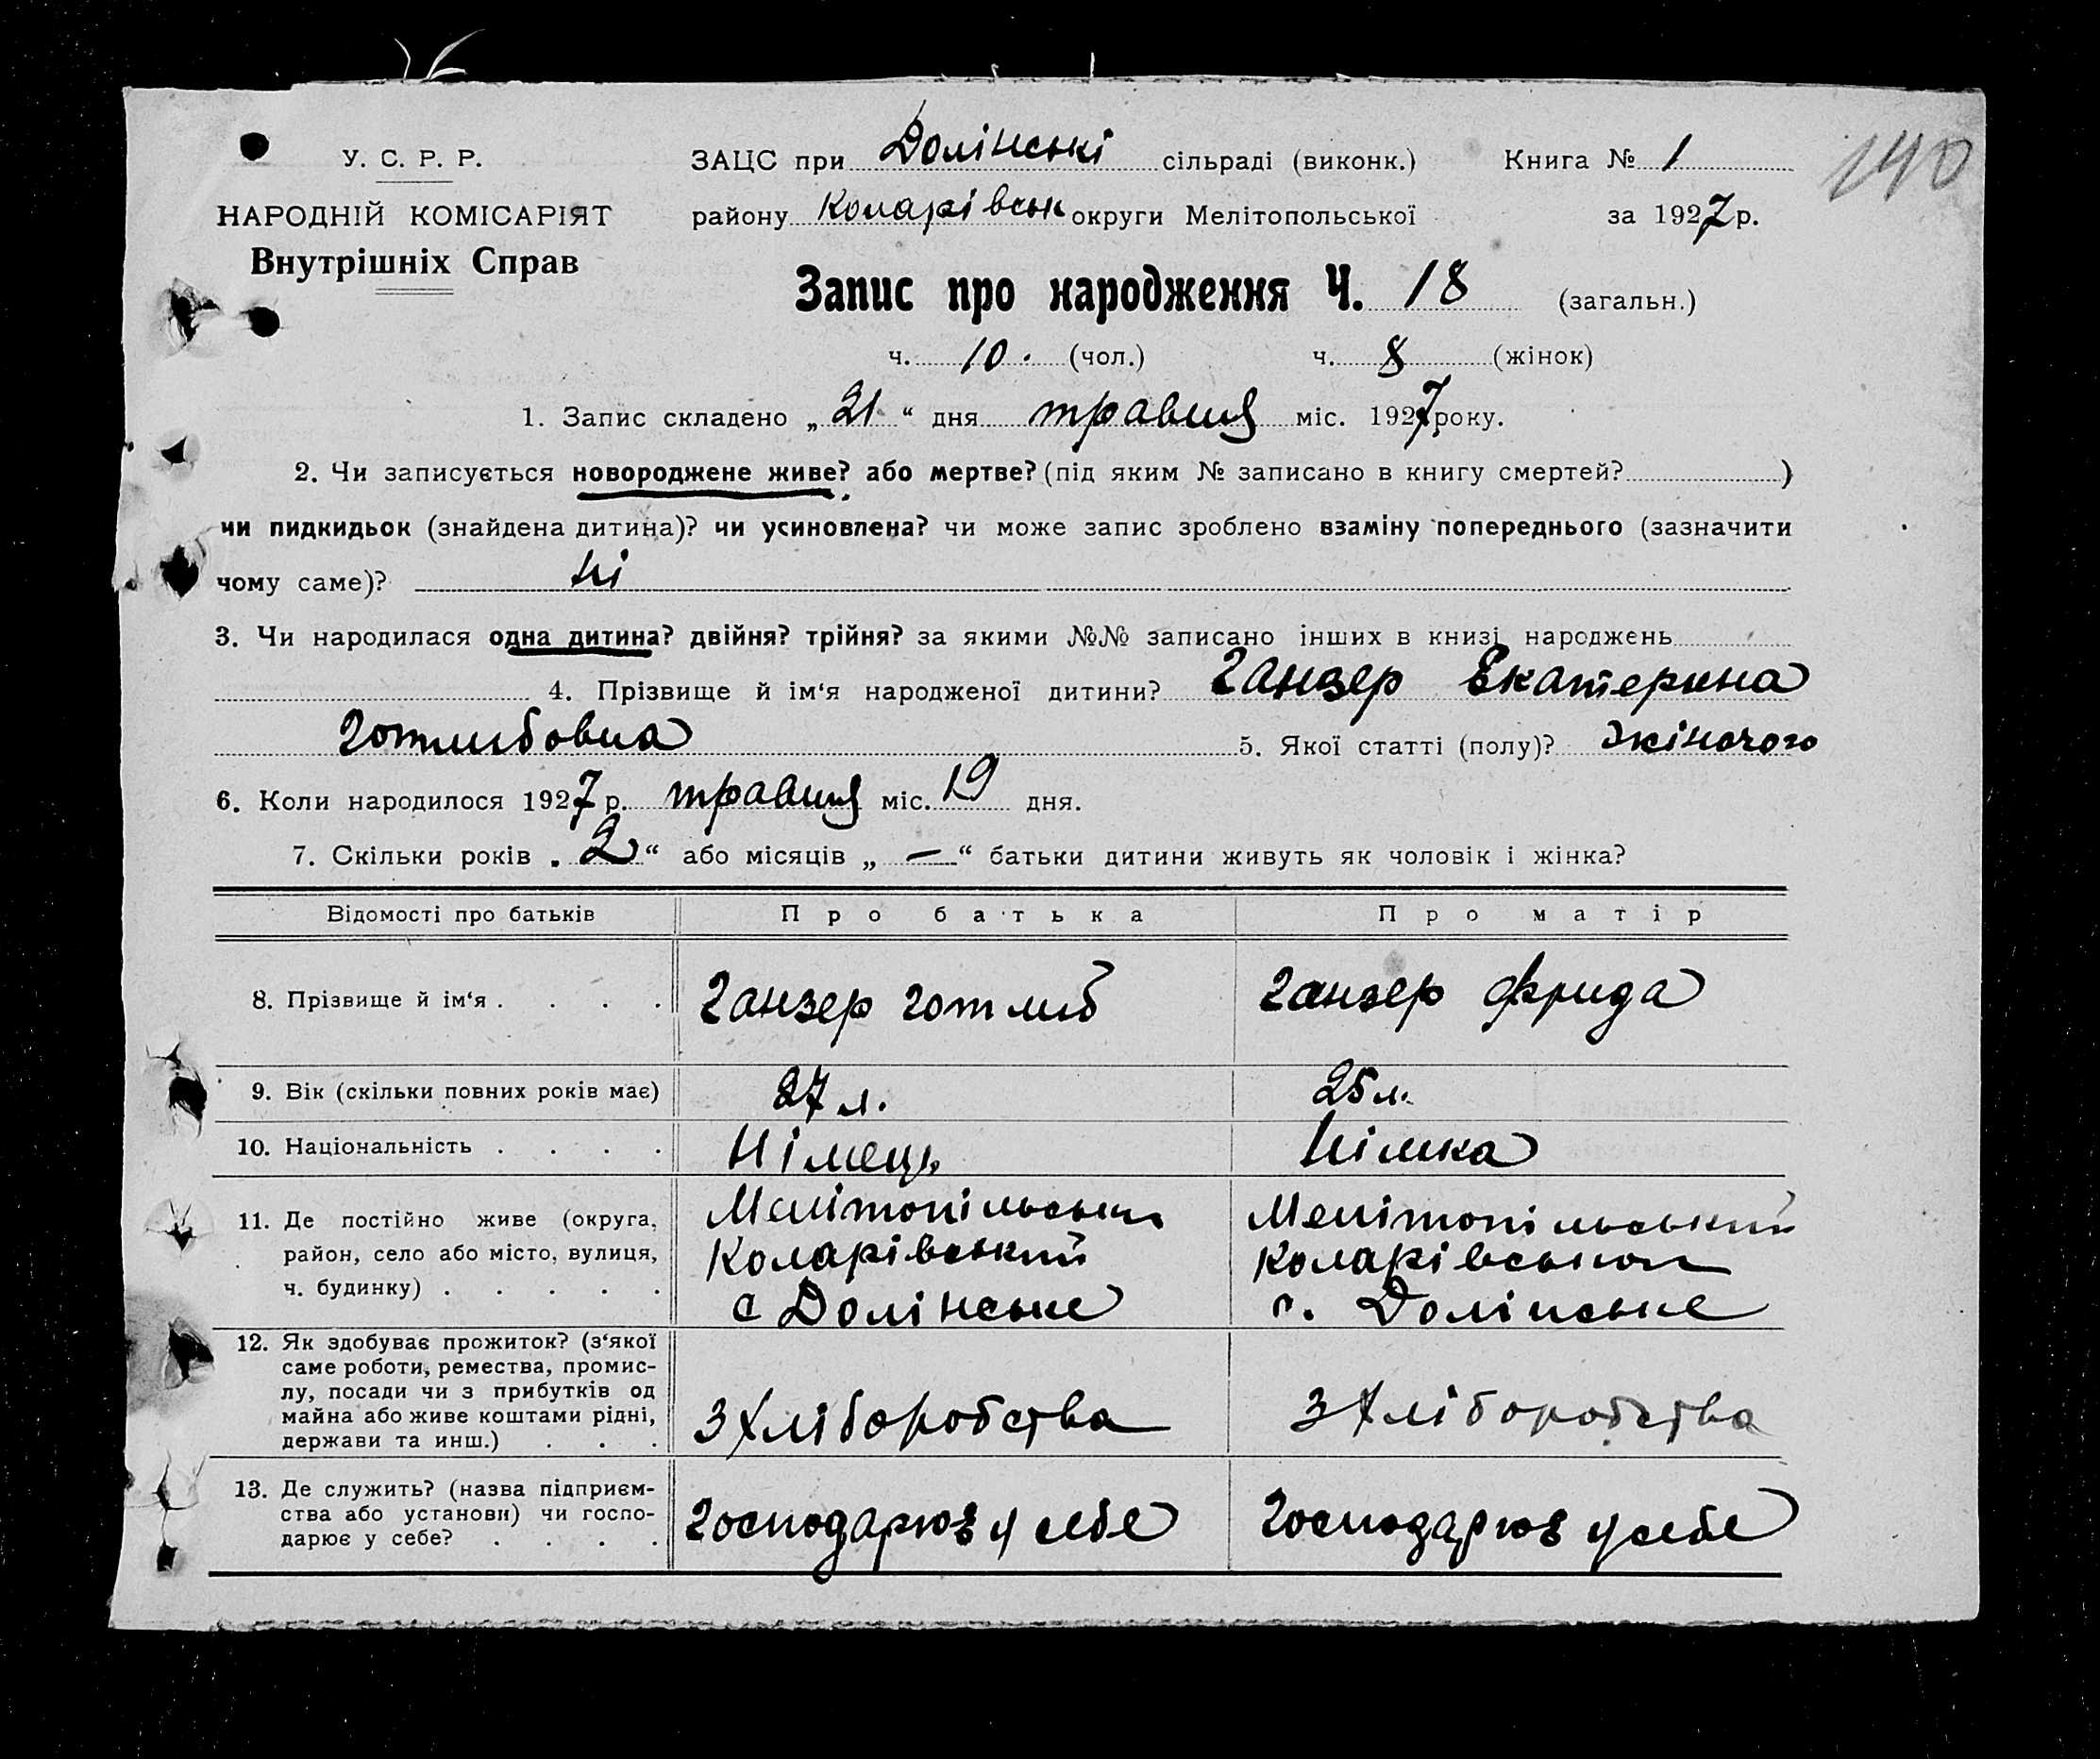 У. С. Р. Р.
НАРОДНІЙ КОМІСАРІЯТ
Внутрішніх Справ
ЗАЦС при Долінські сільраді (виконк.) Книга № 1
140
району Коларівськ округи Мелітопольської за 1927 р.
Запис про народження Ч. 18 (загальн.)
ч. 10. (чол.) ч. 8 (жінок)
1. Запис складено „ 21 “ дня травня міс. 1927 року.
2. Чи записується новороджене живе? або мертве? (під яким № записано в книгу смертей? )
чи пидкидьок (знайдена дитина)? чи усиновлена? чи може запис зроблено взаміну попереднього (зазначити
чому саме)? Ні
3. Чи народилася одна дитина? двійня? трійня? за якими №№ записано інших в книзі народжень
4. Прізвище й ім‘я народженої дитини? Ганзер Екатерина
Готлибовна 5. Якої статті (полу)? жіночого
6. Коли народилося 1927 р. травня міс. 19 дня.
7. Скільки років „ 2 “ або місяців „ — “ батьки дитини живуть як чоловік і жінка?
Відомості про батьків Про батька Про матір
8. Прізвище й ім‘я . . . . Ганзер Готлиб Ганзер Фрида
9. Вік (скільки повних років має) 27 л. 25 л.
10. Національність . . . . Німець Німка
11. Де постійно живе (округа, Мелітопільський Мелітопільський
район, село або місто, вулиця, Коларівський Коларівський
ч. будинку) . . . . . с Долінське с. Долінське
12. Як здобуває прожиток? (з‘якої
саме роботи, ремества, промис-
лу, посади чи з прибутків од
майна або живе коштами рідні, З Хліборобства З Хліборобства
держави та инш.) . . .
13. Де служить? (назва підприєм-
ства або установи) чи госпо- Господарює у себе Господарює у себе
дарює у себе? . . . .